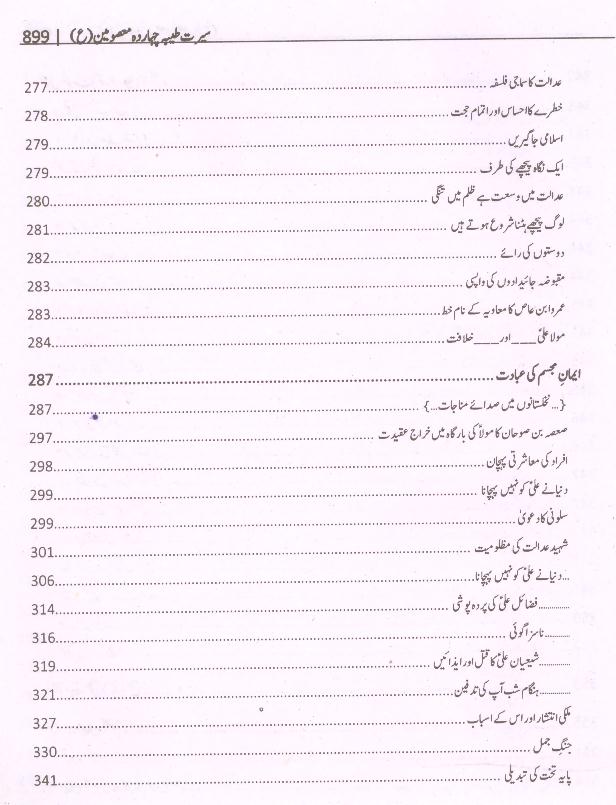 سیرت طیبہ چہاردہ معصومین(ع) | 899
عدالت کا سماجی فلسفہ ........ 277
خطرے کا احساس اور اتمام حجت ........ 278
اسلامی جاگیریں ........ 279
ایک نگاہ پیچھے کی طرف ........ 279
عدالت میں وسعت ہے ظلم میں تنگی ........ 280
لوگ پیچھے ہٹنا شروع ہوتے ہیں ........ 281
دوستوں کی رائے ........ 282
مقبوضہ جائیدادوں کی واپسی ........ 283
عمرو ابن عاص کا معاویہ کے نام خط ........ 283
مولا علیؑ ___اور ___خلافت ........ 284
ایمانِ مجسم کی عبادت ........ 287
{... نخلستانوں میں صدائے مناجات...} ........ 287
صعصہ بن صوحان کا مولاؑ کی بارگاہ میں خراج عقیدت ........ 297
افراد کی معاشرتی پہچان ........ 298
دنیا نے علیؑ کو نہیں پہچانا ........ 299
سلونی کا دعویٰ ........ 299
شہید عدالت کی مظلومیت ........ 301
...دنیا نے علیؑ کو نہیں پہچانا ........ 306
............فضائل علیؑ کی پردہ پوشی ........ 314
..........ناسزا گوئی ........ 316
............شیعیان علیؑ کا قتل اور ایذائیں ........ 319
............ہنگام شب آپ کی تدفین ........ 321
ملکی انتشار اور اس کے اسباب ........ 327
جنگِ جمل ........ 330
پایہ تخت کی تبدیلی ........ 341